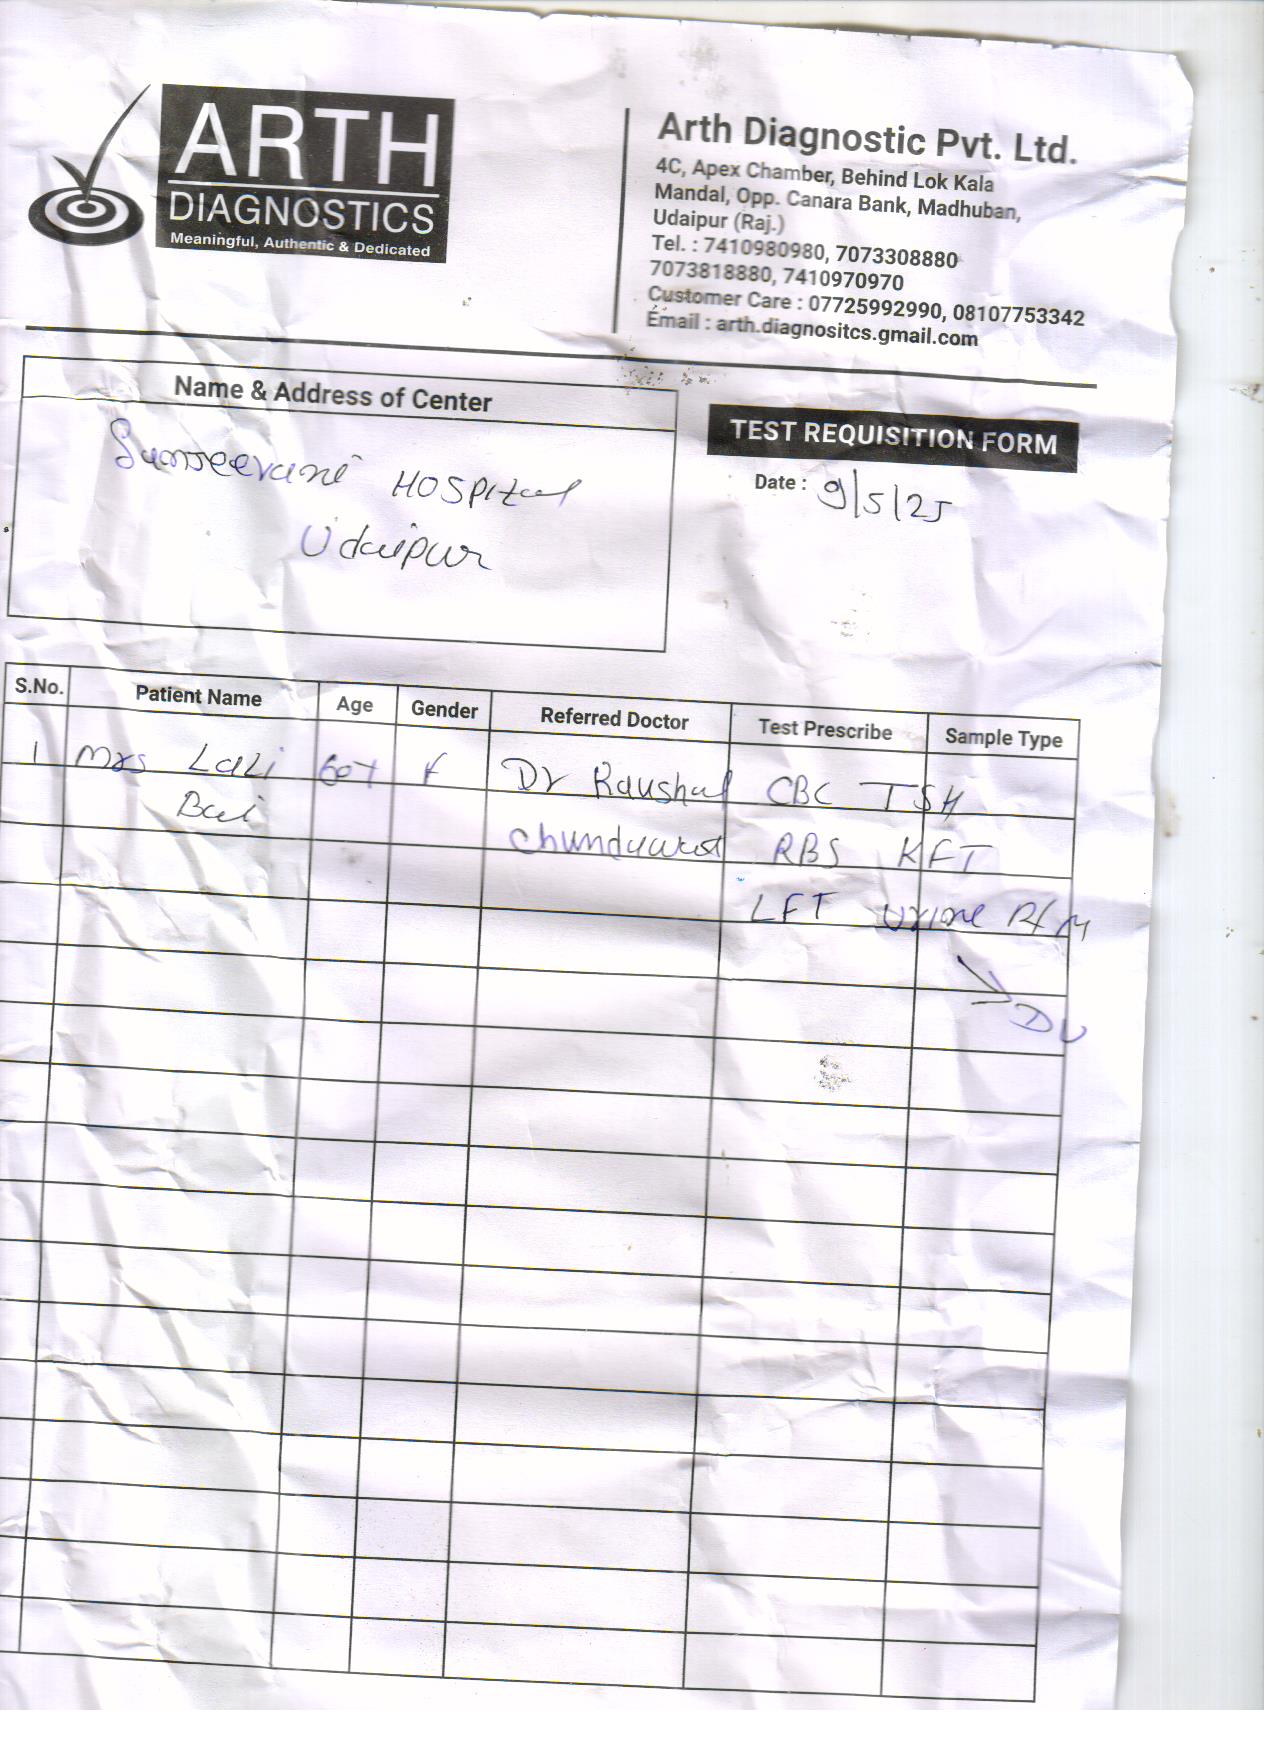 ARTH
DIAGNOSTICS
Meaningful, Authentic & Dedicated
Arth Diagnostic Pvt. Ltd.
4C, Apex Chamber, Behind Lok Kala
Mandal, Opp. Canara Bank, Madhuban,
Udaipur (Raj.)
Tel. : 7410980980, 7073308880
7073818880, 7410970970
Customer Care : 07725992990, 08107753342
Email : arth.diagnositcs.gmail.com
Name & Address of Center
Sunjeevani Hospital
Udaipur
TEST REQUISITION FORM
Date : 9/5/25
S.No. Patient Name Age Gender Referred Doctor Test Prescribe Sample Type
1 Mrs Lali 60Y F Dr Raushal CBC TSH
Bai Chundawat RBS KFT
LFT Urine R/M
DU